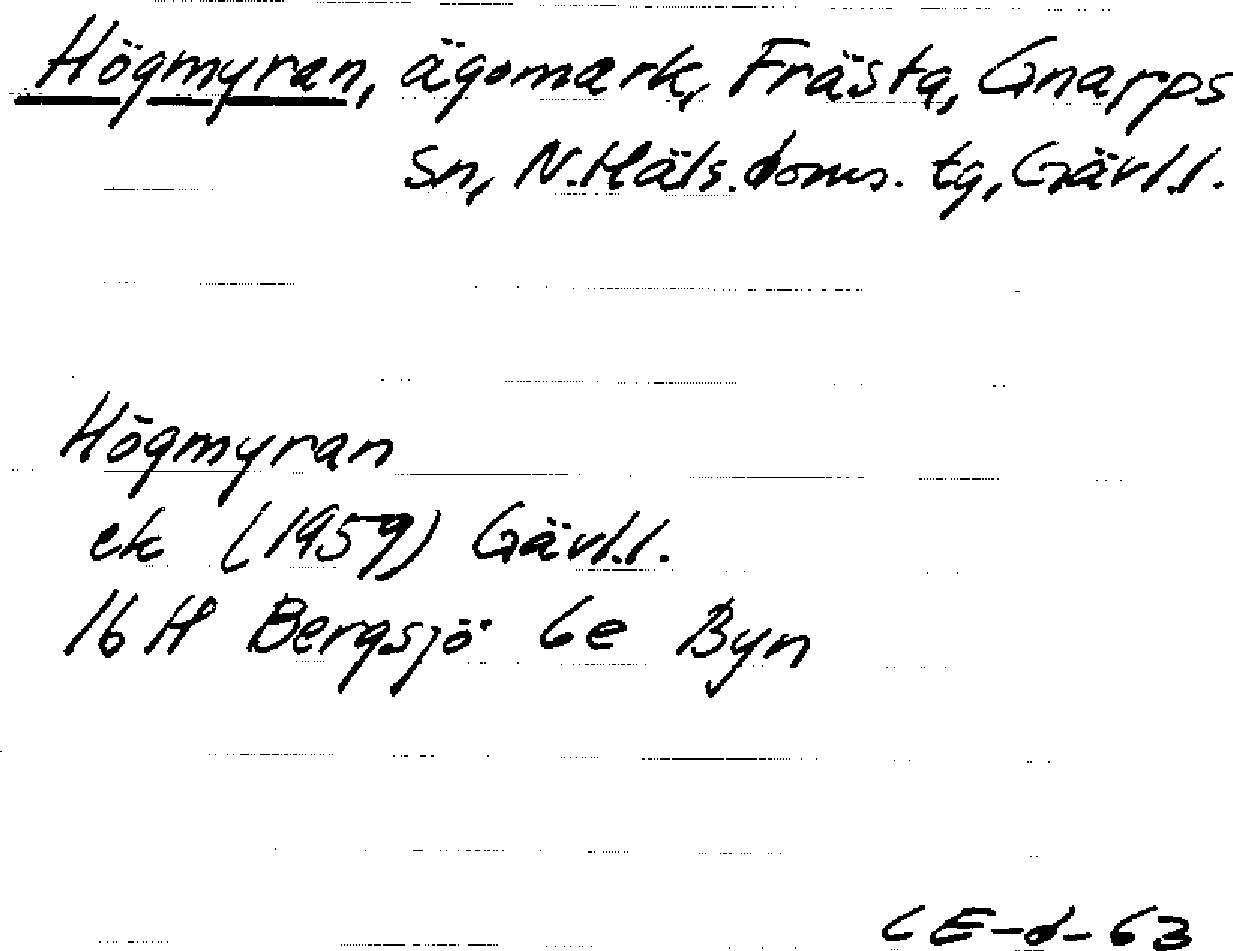 Högmyran, ägomark, Frästa, Gnarps
Sn, N.Häls.doms. tg, Gävl.l.
Högmyran
ek (1959) Gävl.l.
16 H Bergsjö 6e Byn
6E-d-63